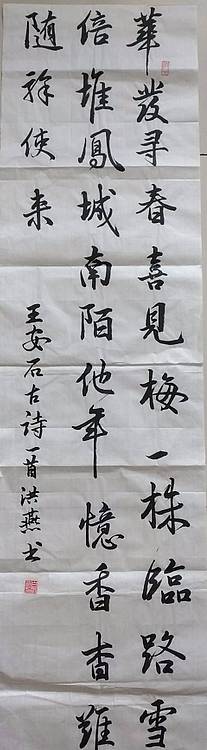 華發寻春喜見梅一株臨路雪
倍堆鳳城南陌他年憶香杳難
随驛使来
王安石古诗一首洪燕书